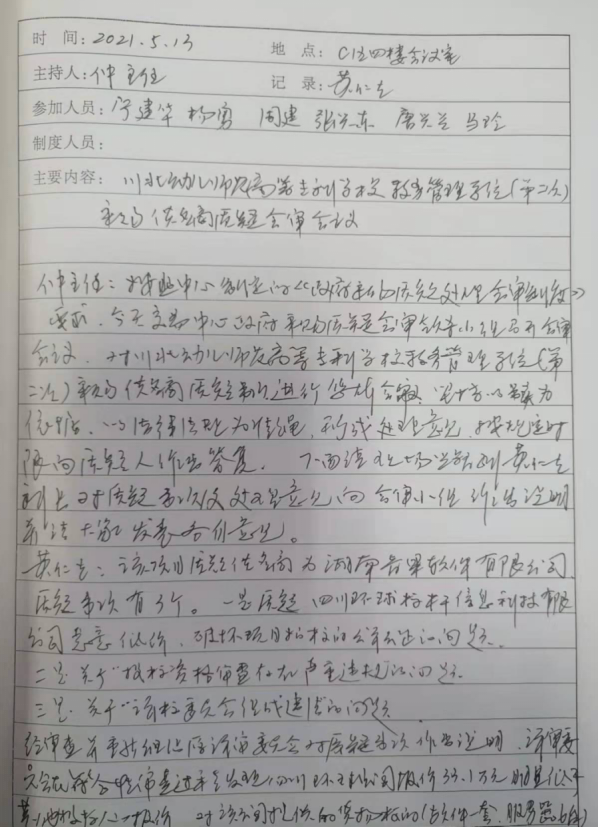 时 间: 2021.5.13 地 点: C区四楼会议室
主持人: 仲主任 记 录: 黄仁之
参加人员: 宁建华 杨勇 周建 张兴东 唐兴兰 马玲
制度人员:
主要内容: 川北幼儿师范高等专科学校教务管理系统(第二次)
采购供应商质疑会审会议
仲主任: 按照中心制定的《政府采购质疑处理会审制度》
要求, 今天交易中心政府采购质疑会审领导小组召开会审
会议, 对川北幼儿师范高等专科学校教务管理系统(第
二次)采购供应商质疑事项进行集体会审, 以事实为
依据, 以法律法规为准绳, 形成处理意见, 按规定时
限向质疑人作出答复。 下面请
对质疑事项及处理意见向会审小组作出说明
并请大家发表各自意见。
黄仁之: 该项目质疑供应商为湖南 软件有限公司,
质疑事项有3个。一是质疑四川环球 信息科技有限
公司恶意低价, 破坏项目招标的公平公正的问题。
二是关于“投标资格审查存在严重违规”的问题
三是关于“评标委员会组成违法”的问题
经审查并重新组织原评审委员会对质疑事项作出说明, 评审委
员会在符合性审查过程中发现四川环球公司报价33.1万元明显低于
其他投标人的报价, 对该公司提供的 (软件一套, 服务器